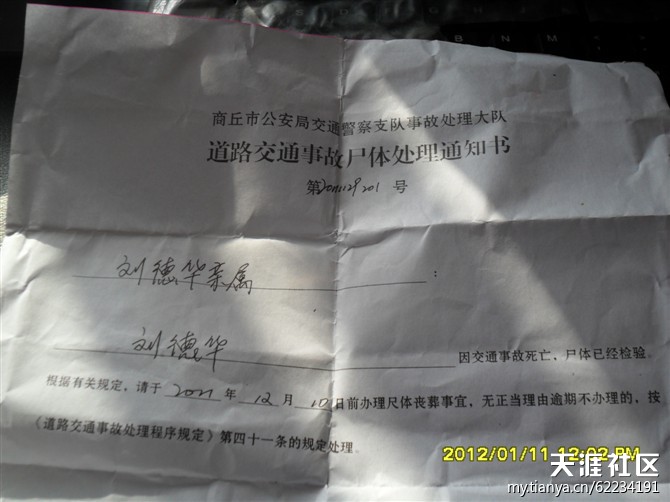 商丘市公安局交通警察支队事故处理大队
道路交通事故尸体处理通知书
第2011129201号
刘德华亲属：
刘德华 因交通事故死亡，尸体已经检验。
根据有关规定，请于2011年12月10日前办理尺体丧葬事宜，无正当理由逾期不办理的，按
《道路交通事故处理程序规定》第四十一条的规定处理。
2012/01/11 12:02 PM
天涯社区
mytianya.cn/62234191
B N M